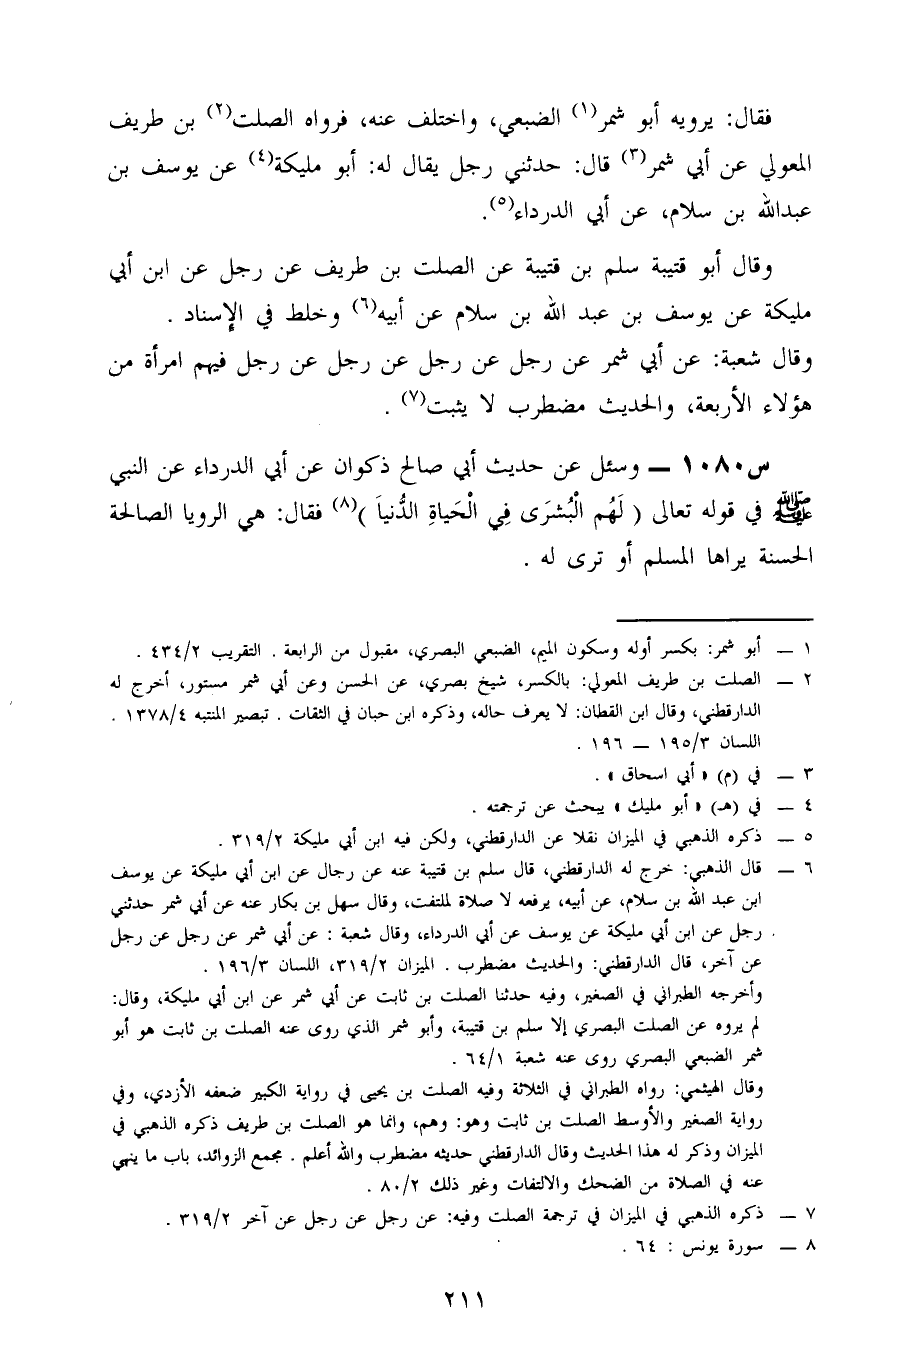 فقال: يرويه أبو شمر(١) الضبعي، واختلف عنه، فرواه الصلت(٢) بن طريف
المعولي عن أبي شمر(٣) قال: حدثني رجل يقال له: أبو مليكة(٤) عن يوسف بن
عبدالله بن سلام، عن أبي الدرداء(٥).
وقال أبو قتيبة سلم بن قتيبة عن الصلت بن طريف عن رجل عن ابن أبي
مليكة عن يوسف بن عبد الله بن سلام عن أبيه(٦) وخلط في الإسناد .
وقال شعبة: عن أبي شمر عن رجل عن رجل عن رجل عن رجل فيهم امرأة من
هؤلاء الأربعة، والحديث مضطرب لا يثبت(٧) .
س١٠٨٠ ــ وسئل عن حديث أبي صالح ذكوان عن أبي الدرداء عن النبي
ﷺ في قوله تعالى ( لَهُم الْبُشرَى فِي الْحَياةِ الدُّنياَ )(٨) فقال: هي الرويا الصالحة
الحسنة يراها المسلم أو ترى له .
١ ــ أبو شمر: بكسر أوله وسكون الميم، الضبعي البصري، مقبول من الرابعة . التقريب ٤٣٤/٢ .
٢ ــ الصلت بن طريف المعولي: بالكسر، شيخ بصري، عن الحسن وعن أبي شمر مستور، أخرج له
الدارقطني، وقال ابن القطان: لا يعرف حاله، وذكره ابن حبان في الثقات . تبصير المنتبه ١٣٧٨/٤ .
اللسان ١٩٥/٣ ــ ١٩٦ .
٣ ــ في (م) « أبي اسحاق » .
٤ ــ في (هـ) « أبو مليك » يبحث عن ترجمته .
٥ ــ ذكره الذهبي في الميزان نقلا عن الدارقطني، ولكن فيه ابن أبي مليكة ٣١٩/٢ .
٦ ــ قال الذهبي: خرج له الدارقطني، قال سلم بن قتيبة عنه عن رجال عن ابن أبي مليكة عن يوسف
ابن عبد الله بن سلام، عن أبيه، يرفعه لا صلاة لملتفت، وقال سهل بن بكار عنه عن أبي شمر حدثني
رجل عن ابن أبي مليكة عن يوسف عن أبي الدرداء، وقال شعبة : عن أبي شمر عن رجل عن رجل عن رجل
عن آخر، قال الدارقطني: والحديث مضطرب . الميزان ٣١٩/٢، اللسان ١٩٦/٣ .
وأخرجه الطبراني في الصغير، وفيه حدثنا الصلت بن ثابت عن أبي شمر عن ابن أبي مليكة، وقال:
لم يروه عن الصلت البصري إلا سلم بن قتيبة، وأبو شمر الذي روى عنه الصلت بن ثابت هو أبو
شمر الضبعي البصري روى عنه شعبة ٦٤/١ .
وقال الهيثمي: رواه الطبراني في الثلاثة وفيه الصلت بن يحيى في رواية الكبير ضعفه الأزدي، وفي
رواية الصغير والأوسط الصلت بن ثابت وهو: وهم، وانما هو الصلت بن طريف ذكره الذهبي في
الميزان وذكر له هذا الحديث وقال الدارقطني حديثه مضطرب والله أعلم . مجمع الزوائد، باب ما ينهي
عنه في الصلاة من الضحك والالتفات وغير ذلك ٨٠/٢ .
٧ ــ ذكره الذهبي في الميزان في ترجمة الصلت وفيه: عن رجل عن رجل عن آخر ٣١٩/٢ .
٨ ــ سورة يونس : ٦٤ .
٢١١